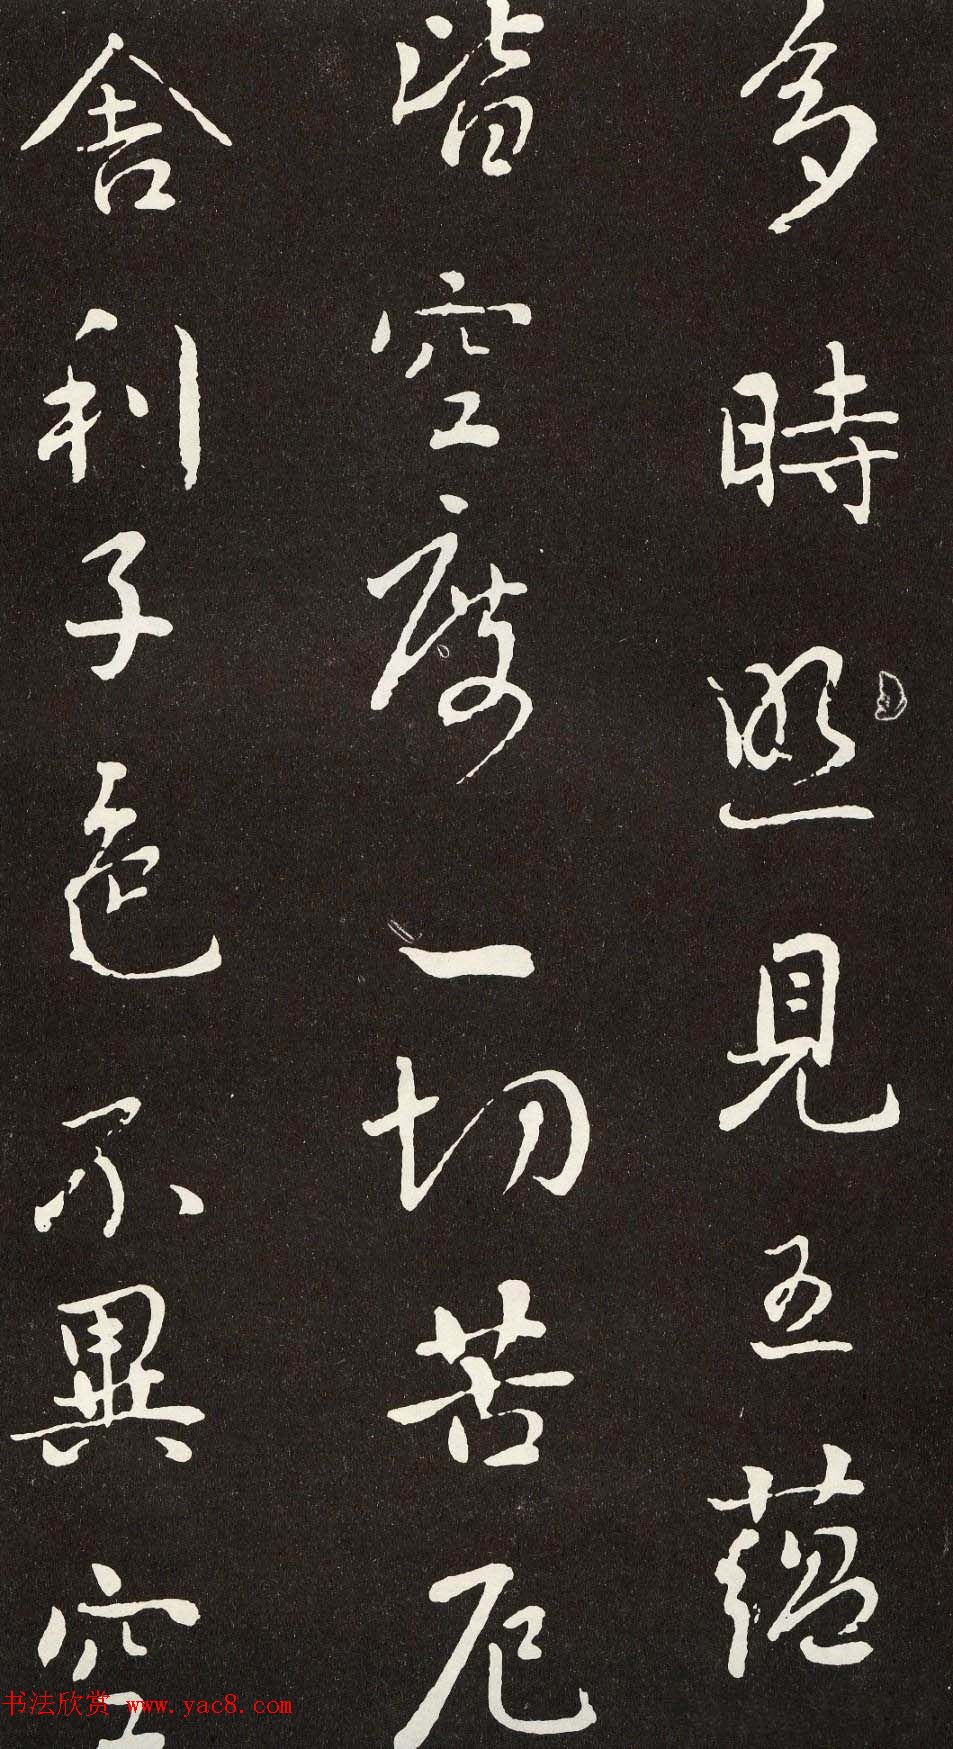 多時照見五蘊
皆空度一切苦厄
舍利子色不異空
书法欣赏 www.yac8.com